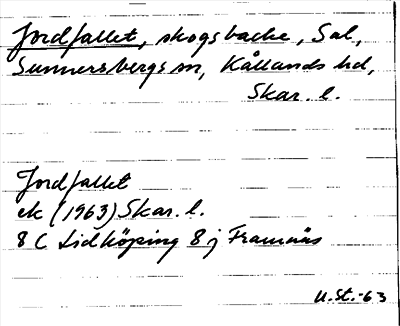 Jordfallet, skogsbacke, Sal,
Sunnersbergs sn, Kållands hd,
Skar. l.
Jordfallet
ek (1963) Skar. l.
8 C Lidköping 8 j Framnäs
U.St.-63